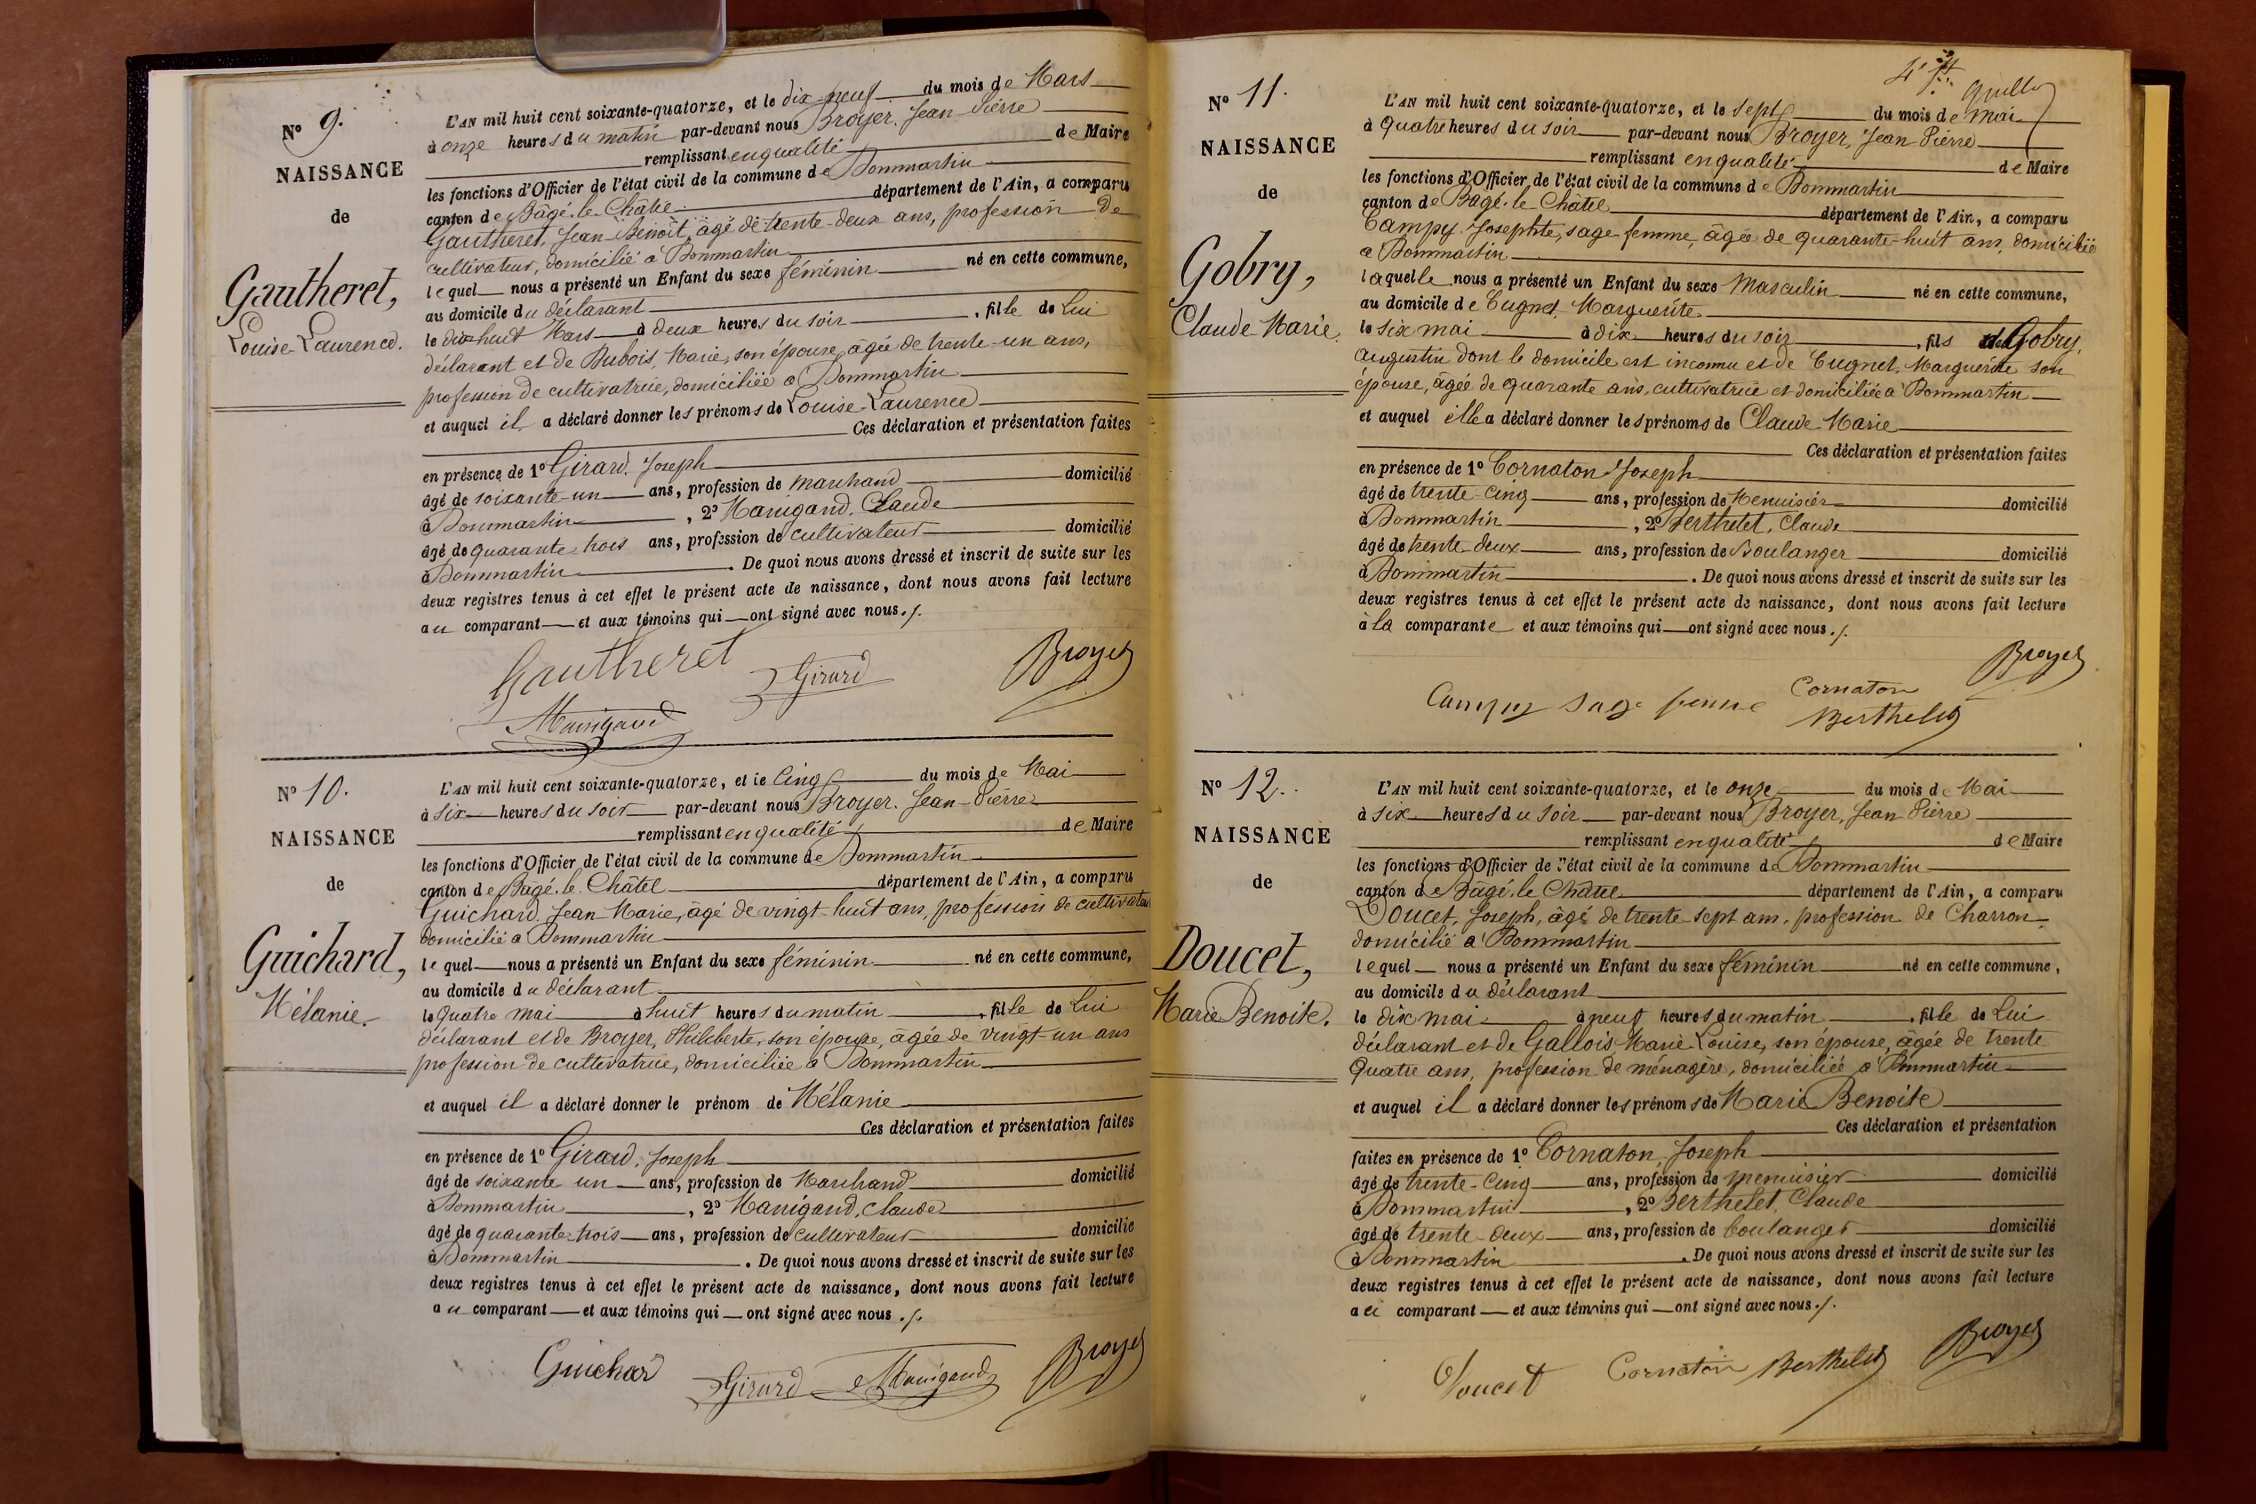 N° 9.
NAISSANCE
de
Gautheret,
Louise Laurence.
L'AN mil huit cent soixante-quatorze, et le dix-neuf du mois de Mars
à onze heures du matin par-devant nous Broyer, Jean Pierre
remplissant en qualité de Maire
les fonctions d'Officier de l'état civil de la commune de Dommartin
canton de Bâgé-le-Châtel département de l'Ain, a comparu
Gautheret, Jean Benoît, âgé de trente-deux ans, profession de
cultivateur, domicilié à Dommartin
lequel nous a présenté un Enfant du sexe féminin né en cette commune,
au domicile du déclarant
le dix-huit Mars à deux heures du soir, fille de Lui
déclarant et de Dubois, Marie, son épouse, âgée de trente-un ans,
profession de cultivatrice, domiciliée à Dommartin
et auquel il a déclaré donner les prénoms de Louise-Laurence
Ces déclaration et présentation faites
en présence de 1° Girard, Joseph
âgé de soixante-un ans, profession de marchand domicilié
à Dommartin, 2° Manigand, Claude
âgé de quarante-trois ans, profession de cultivateur domicilié
à Dommartin. De quoi nous avons dressé et inscrit de suite sur les
deux registres tenus à cet effet le présent acte de naissance, dont nous avons fait lecture
au comparant et aux témoins qui ont signé avec nous./.
Gautheret Girard Broyer
Manigand
N° 10.
NAISSANCE
de
Guichard,
Mélanie.
L'AN mil huit cent soixante-quatorze, et le Cinq du mois de Mai
à six heures du soir par-devant nous Broyer, Jean-Pierre
remplissant en qualité de Maire
les fonctions d'Officier de l'état civil de la commune de Dommartin
canton de Bâgé-le-Châtel département de l'Ain, a comparu
Guichard, Jean Marie, âgé de vingt-huit ans, profession de cultivateur
domicilié à Dommartin
lequel nous a présenté un Enfant du sexe féminin né en cette commune,
au domicile du déclarant
le Quatre mai à huit heures du matin, fille de Lui
déclarant et de Broyer, Philiberte, son épouse, âgée de vingt-un ans
profession de cultivatrice, domiciliée à Dommartin
et auquel il a déclaré donner le prénom de Mélanie
Ces déclaration et présentation faites
en présence de 1° Girard, Joseph
âgé de soixante un ans, profession de Marchand domicilié
à Dommartin, 2° Manigand, Claude
âgé de quarante-trois ans, profession de cultivateur domicilié
à Dommartin. De quoi nous avons dressé et inscrit de suite sur les
deux registres tenus à cet effet le présent acte de naissance, dont nous avons fait lecture
au comparant et aux témoins qui ont signé avec nous./.
Guichard Girard Manigand Broyer
N° 11.
NAISSANCE
de
Gobry,
Claude Marie.
L'AN mil huit cent soixante-quatorze, et le sept du mois de mai
à quatre heures du soir par-devant nous Broyer, Jean Pierre
remplissant en qualité de Maire
les fonctions d'Officier de l'état civil de la commune de Dommartin
canton de Bâgé-le-Châtel département de l'Ain, a comparu
Campy Josephte, sage-femme, âgée de quarante-huit ans, domiciliée
à Dommartin
laquelle nous a présenté un Enfant du sexe Masculin né en cette commune,
au domicile de Cugnet, Marguerite
le six mai à dix heures du soir, fils de Gobry,
Augustin dont le domicile est inconnu et de Cugnet, Marguerite son
épouse, âgée de quarante ans, cultivatrice et domiciliée à Dommartin
et auquel elle a déclaré donner les prénoms de Claude-Marie
Ces déclaration et présentation faites
en présence de 1° Cornaton Joseph
âgé de trente-cinq ans, profession de Menuisier domicilié
à Dommartin, 2° Berthelet, Claude
âgé de trente-deux ans, profession de Boulanger domicilié
à Dommartin. De quoi nous avons dressé et inscrit de suite sur les
deux registres tenus à cet effet le présent acte de naissance, dont nous avons fait lecture
à la comparante et aux témoins qui ont signé avec nous./.
Broyer
Campy sage femme Cornaton
Berthelet
N° 12.
NAISSANCE
de
Doucet,
Marie Benoite.
L'AN mil huit cent soixante-quatorze, et le onze du mois de Mai
à six heures du soir par-devant nous Broyer, Jean Pierre
remplissant en qualité de Maire
les fonctions d'Officier de l'état civil de la commune de Dommartin
canton de Bâgé-le-Châtel département de l'Ain, a comparu
Doucet, Joseph, âgé de trente-sept ans, profession de Charron
domicilié à Dommartin
lequel nous a présenté un Enfant du sexe féminin né en cette commune,
au domicile du déclarant
le dix mai à neuf heures du matin, fille de Lui
déclarant et de Gallois Marie Louise, son épouse, âgée de trente
Quatre ans, profession de ménagère, domiciliée à Dommartin
et auquel il a déclaré donner les prénoms de Marie Benoite
Ces déclaration et présentation
faites en présence de 1° Cornaton, Joseph
âgé de trente-cinq ans, profession de menuisier domicilié
à Dommartin, 2° Berthelet, Claude
âgé de trente-deux ans, profession de boulanger domicilié
à Dommartin. De quoi nous avons dressé et inscrit de suite sur les
deux registres tenus à cet effet le présent acte de naissance, dont nous avons fait lecture
au comparant et aux témoins qui ont signé avec nous./.
Doucet Cornaton Berthelet Broyer